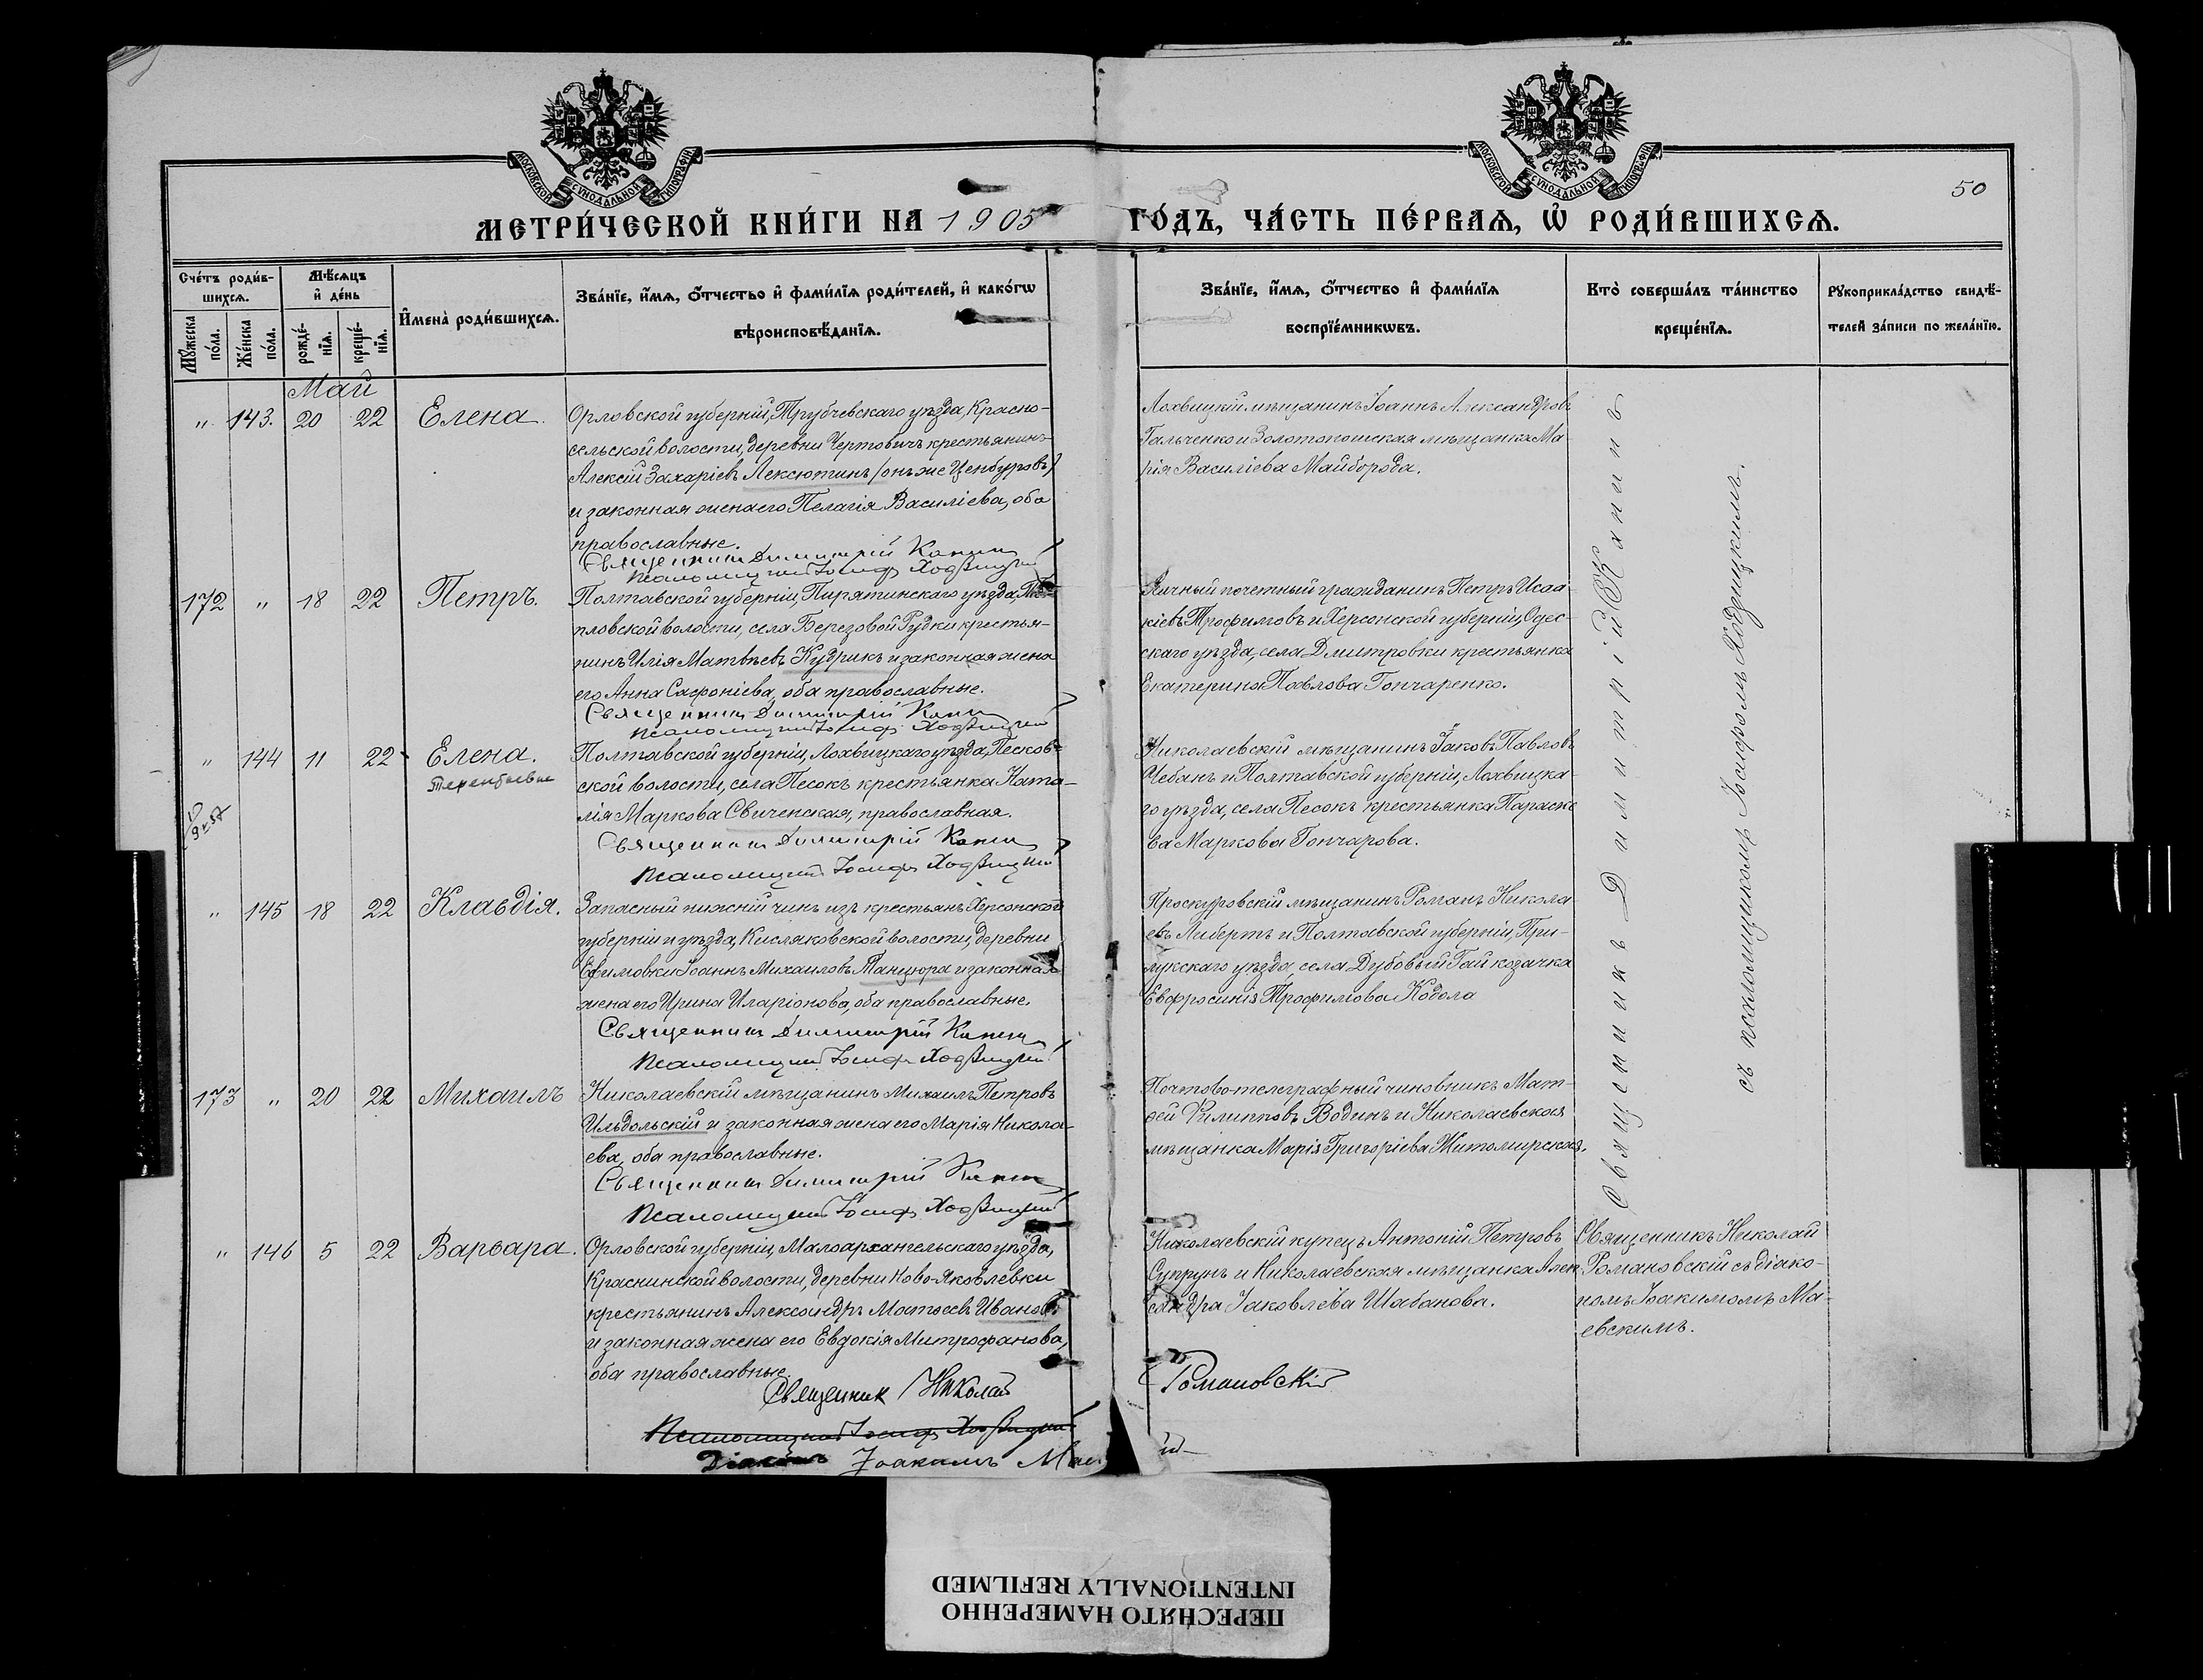 МОСКОВСКОЙ СУНОДАЛЬНОЙ ТИПОГРАФІИ
МОСКОВСКОЙ СУНОДАЛЬНОЙ ТИПОГРАФІИ
50
МЕТРИ́ЧЕСКОЙ КНИ́ГИ НА 1905 ГО́ДЪ, ЧА́СТЬ ПЕ́РВАѦ, Ѡ҆ РОДИ́ВШИХСѦ.
Сче́тъ роди́вшихсѧ.
Мѣ́сѧцъ и҆ де́нь
Мꙋ́жеска по́ла.
Же́нска по́ла.
рожде́нїѧ.
креще́нїѧ.
И҆мена̀ роди́вшихсѧ.
Зва́нїе, и҆́мѧ, ѻ҆́тчество и҆ фами́лїѧ роди́телей, и҆ како́гѡ
вѣроисповѣ́данїѧ.
Зва́нїе, и҆́мѧ, ѻ҆́тчество и҆ фами́лїѧ
воспрїе́мникѡвъ.
Кто̀ соверша́лъ та́инство
креще́нїѧ.
Рꙋкоприкла́дство свидѣ́-
телей за́писи по жела́нїю.
Май
" 143. 20 22 Елена.
Орловской губерніи, Трубчевскаго уѣзда, Красно-
сельской волости, деревни Чертовичъ крестьянинъ
Алексій Захаріевъ Лексютинъ (онъ же Ценбуровъ)
и законная жена его Пелагія Василіева, оба
православные.
Священникъ Димитрій Ханинъ
Псаломщикъ Іосифъ Ходзицкій
Лохвицкій мѣщанинъ Іоаннъ Александровъ
Гальченко и Золотоношская мѣщанка Ма-
рія Василіева Майборода.
172 " 18 22 Петръ.
Полтавской губерніи, Пирятинскаго уѣзда, Те-
пловской волости, села Березовой Рудки крестья-
нинъ Илія Матвѣевъ Кудрикъ и законная жена
его Анна Сафоніева, оба православные.
Священникъ Димитрій Ханинъ
Псаломщикъ Іосифъ Ходзицкій
Личный почетный гражданинъ Петръ Исаа-
кіевъ Трофимовъ и Херсонской губерніи, Одес-
скаго уѣзда, села Дмитровки крестьянка
Екатерина Павлова Гончаренко.
" 144 11 22 Елена.
Полтавской губерніи, Лохвицкаго уѣзда, Песков-
ской волости, села Песокъ крестьянка Ната-
лія Маркова Свиченская, православная.
Священникъ Димитрій Ханинъ
Псаломщикъ Іосифъ Ходзицкій
Николаевскій мѣщанинъ Іаковъ Павловъ
Чебанъ и Полтавской губерніи, Лохвицка-
го уѣзда, села Песокъ крестьянка Параске-
ва Маркова Гончарова.
" 145 18 22 Клавдія.
Запасный нижній чинъ изъ крестьянъ Херсонской
губерніи и уѣзда, Кисляковской волости, деревни
Ефимовки Іоаннъ Михаиловъ Танцюра и законная
жена его Ирина Иларіонова, оба православные.
Священникъ Димитрій Ханинъ
Псаломщикъ Іосифъ Ходзицкій
Проскуровскій мѣщанинъ Романъ Никола-
евъ Либертъ и Полтавской губерніи, При-
лукскаго уѣзда, села Дубовый Гай козачка
Евфросинія Трофимова Кодола
173 " 20 22 Михаилъ
Николаевскій мѣщанинъ Михаилъ Петровъ
Ильдольскій и законная жена его Марія Никола-
ева, оба православные.
Священникъ Димитрій Ханинъ
Псаломщикъ Іосифъ Ходзицкій
Почтово-телеграфный чиновникъ Мат-
ѳей Филипповъ Водинъ и Николаевская
мѣщанка Марія Григоріева Житомирская.
Священникъ Димитрій Ханинъ
съ псаломщикомъ Іосифомъ Ходзицкимъ.
" 146 5 22 Варвара.
Орловской губерніи, Малоархангельскаго уѣзда,
Краснинской волости, деревни Ново-Яковлевки
крестьянинъ Александръ Матѳеевъ Ивановъ
и законная жена его Евдокія Митрофанова,
оба православные.
Николаевскій купецъ Антоній Петровъ
Супрунъ и Николаевская мѣщанка Алек-
сандра Іаковлева Шабанова.
Священникъ Николай
Романовскій съ діако-
номъ Іоакимомъ Ма-
евскимъ.
Священник Николай Романовскій
Псаломщикъ Іосифъ Ходзицкій
Діаконъ Іоакимъ
ПЕРЕСНЯТО НАМЕРЕННО
INTENTIONALLY REFILMED